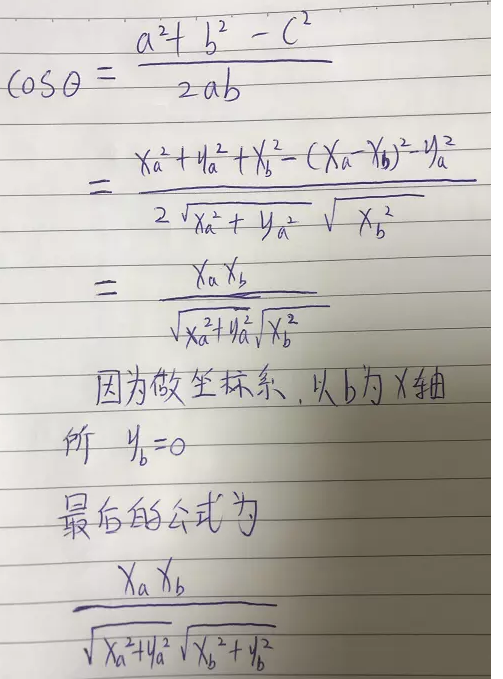 cosθ = (a² + b² - c²) / 2ab
= (xₐ² + yₐ² + x_b² - (xₐ - x_b)² - yₐ²) / (2√(xₐ² + yₐ²) √(x_b²))
= xₐx_b / (√(xₐ² + yₐ²) √(x_b²))
因为做坐标系，以b为x轴
所 y_b = 0
最后的公式为
xₐx_b / (√(xₐ² + yₐ²) √(x_b² + y_b²))